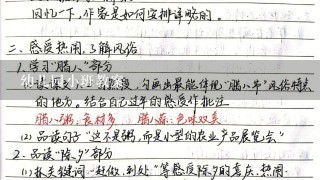 回忆一下,作家是如何安排详略的。
二、感受热闹,了解风俗
1. 学习“腊八”部分
,勾画出最能体现“腊八节”风俗特点
的地方。结合自己过年的感受作批注
腊八粥:食材多 腊八蒜:色味双美
(2) 品读句子“这不是粥,而是小型的农业产品展览会”
2. 品读“除夕”部分
(1) 抓关键词“赶做、到处”等感受除夕的喜庆、热闹.